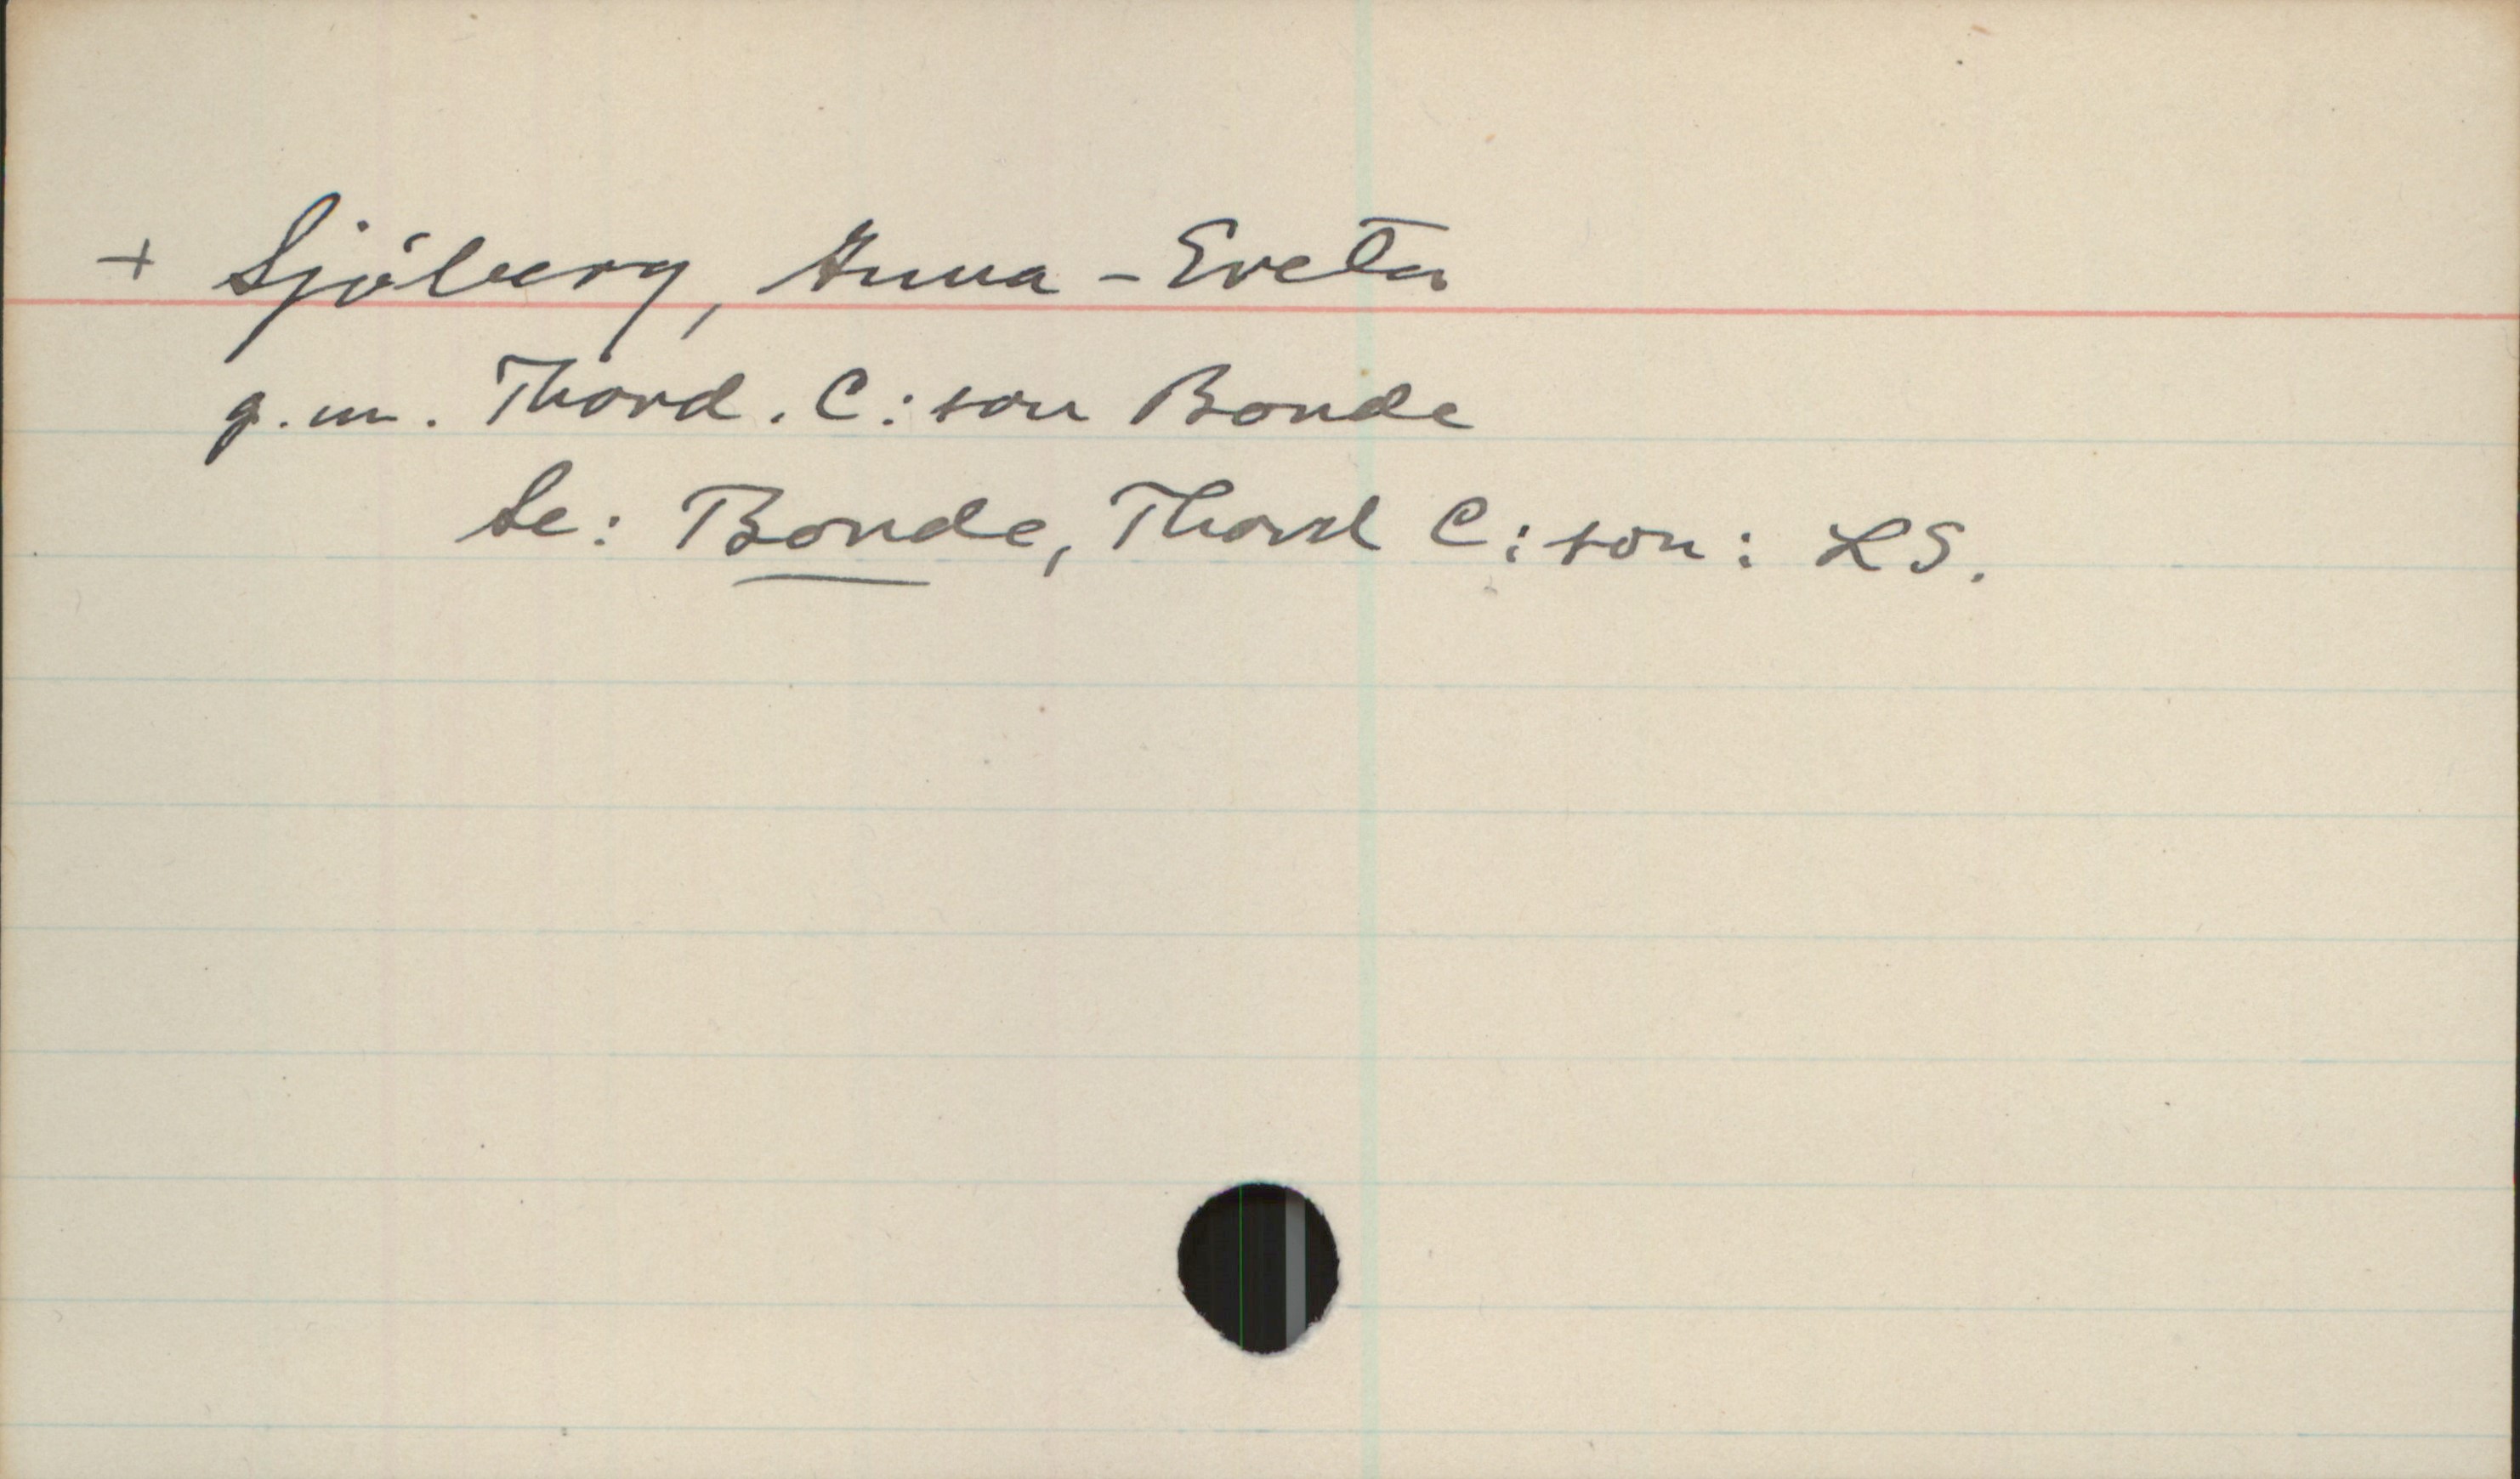 + Sjöberg, Anna-Greta
g.m. Thord. C:son Bonde
Se: Bonde, Thord C:son: LS.